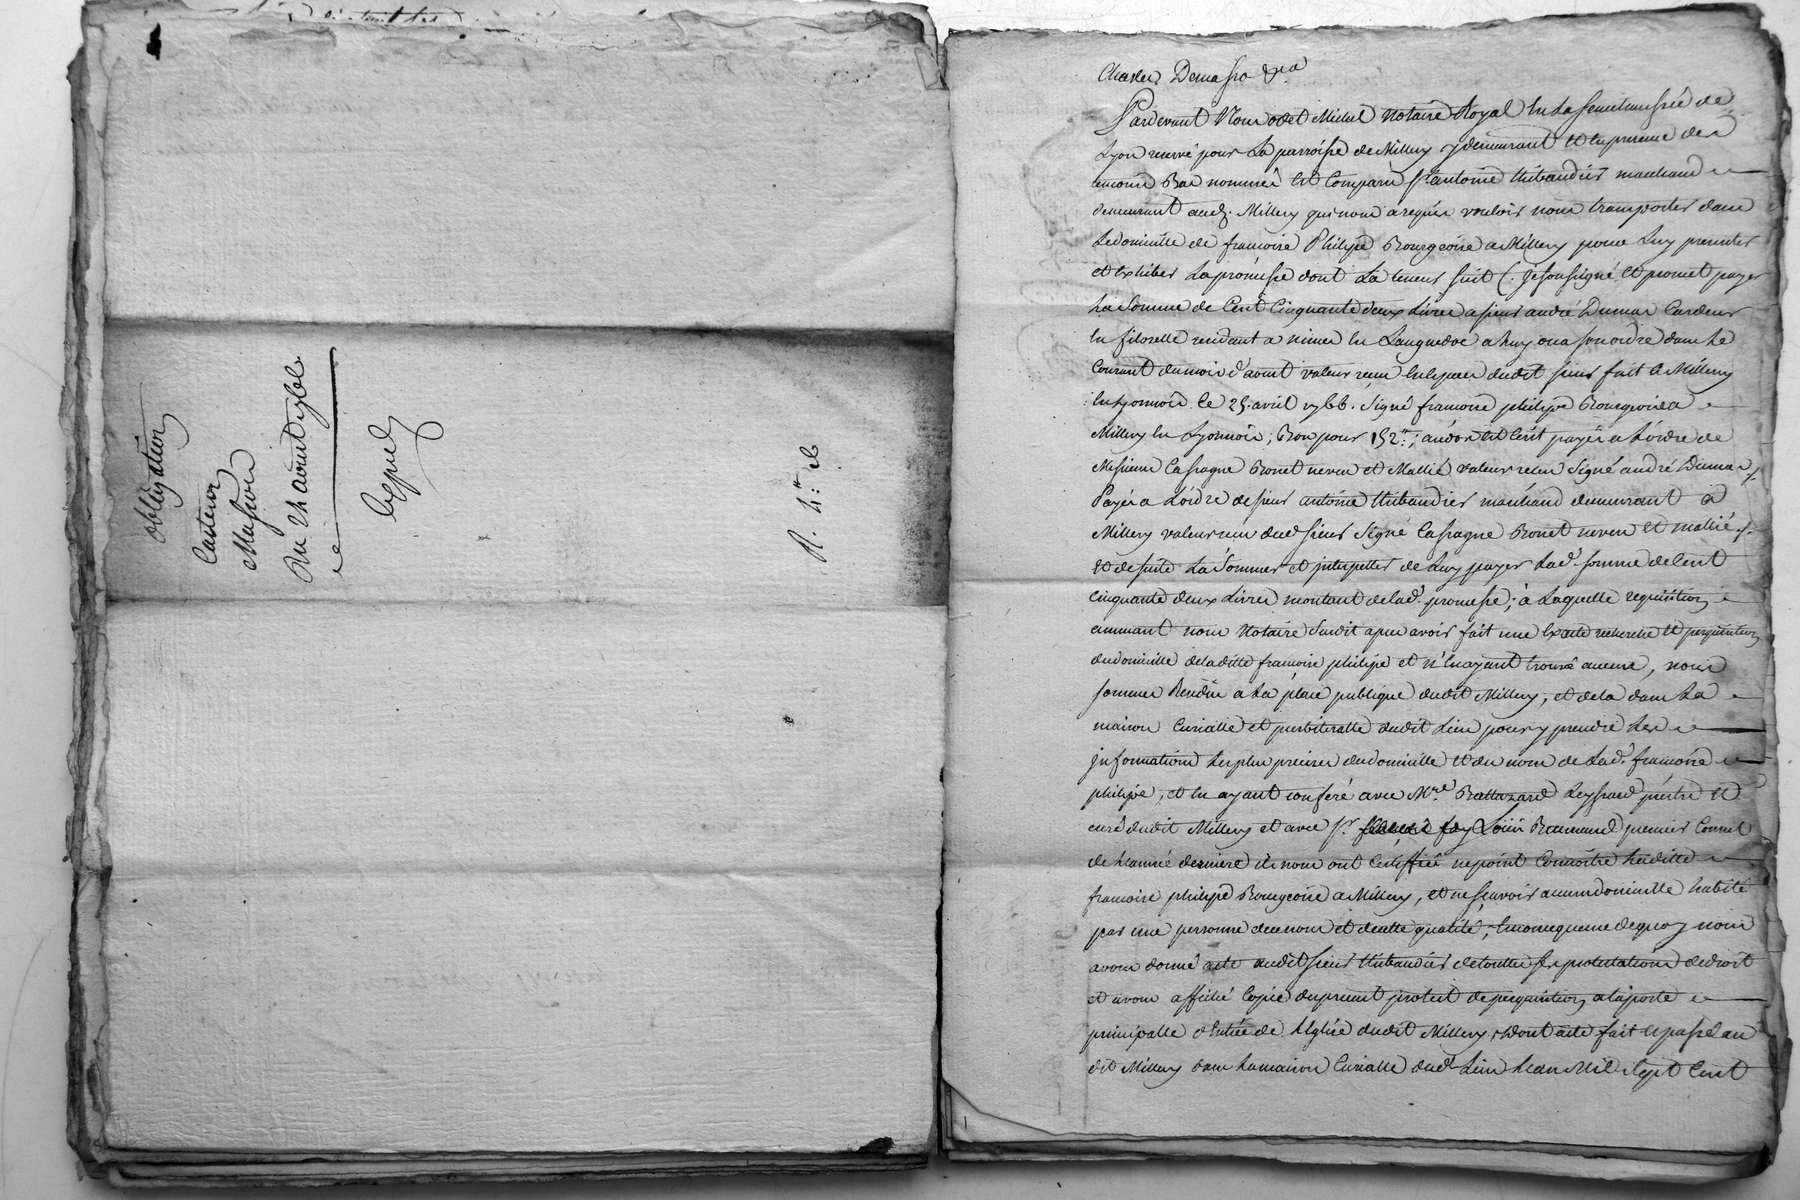 obligation
Casteur
Masson
Du 24 aoust 1766
Exped.
R. 4# : s
Pardevant Nous odet Michel Notaire Royal en la senechaussée de
Lyon reservé pour la parroisse de Millery y demeurant et en presence des
temoins Bas nommés est Comparu sr. antoine thibaudier marchand
demeurant aud. Millery qui nous a requis vouloir nous transporter dans
le domicille de francoise Philipe Bourgeoise a Millery pour luy presenter
et exhiber la promesse dont la teneur suit (. Je sousigné et promet payer
la somme de Cent Cinquante deux Livres a sieur andré Dumas Cardeur
en filoselle rendant a nimes en Languedoc a luy ou a son ordre dans le
Courant du mois d'aout valeur recu en especes dudit sieur fait a Millery
en Lyonnois le 25. avril 1766. Signé francoise philipe Bourgeoise a
Millery en Lyonnois, Bon pour 152#; au dos est ecrit payés a L'ordre de
Messieurs Cassagne Bonet neveu et Mallié valeur receu Signé andré Dumas ./.
Payés a L'ordre de sieur antoine thibaudier marchand demeurant a
Millery valeur recu dud. sieur Signé Cassagne Bonet neveu et mallié ./.
et de suite La Sommer et interpeller de luy payer lad. somme de Cent
Cinquante deux Livres montant de lad. promesse; à Laquelle requisition
ammant nous Notaire Susdit apres avoir fait une Exacte recherche et perquisition
du domicille de laditte francoise philipe et n'en ayant trouvé aucune, nous
sommes Rendus a La place publique dudit Millery, et dela dans La
maison Curialle et presbiteralle dudit Lieu pour y prendre Les
informations les plus precises du domicille et du nom de Lad. francoise
philipe, et en ayant conferé avec Mre. Baltazard Leyssard prêtre et
curé dudit Millery et avec sr. Loüis Beaumund premier Consul
de L'année derniere ils nous ont Certiffié ne point Connoître laditte
francoise philipe Bourgeoise a Millery, et ne scavoir aucun domicille habité
par une personne de ce nom et de cette qualité; En consequence de quoy nous
avons donné acte audit sieur thibaudier de touttes ses protestations de droit
et avons affiché Copie du present protest de perquisition a la porte
principalle d'Entrée de L'Eglise dudit Millery, Dont acte fait et passé au
dit Millery dans La maison Curialle dud. Lieu L'an Mil Sept Cent